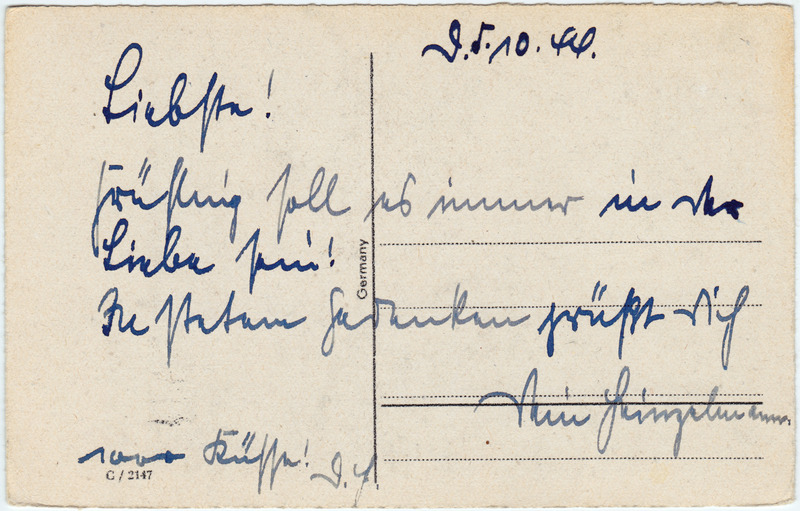 D. 5. 10. 44.
Liebste!
Frühling soll es immer in der
Liebe sein!
In stetem Gedenken grüßt Dich
Dein Heinzelmann.
1000 Küsse! D. H.
Germany
C / 2147